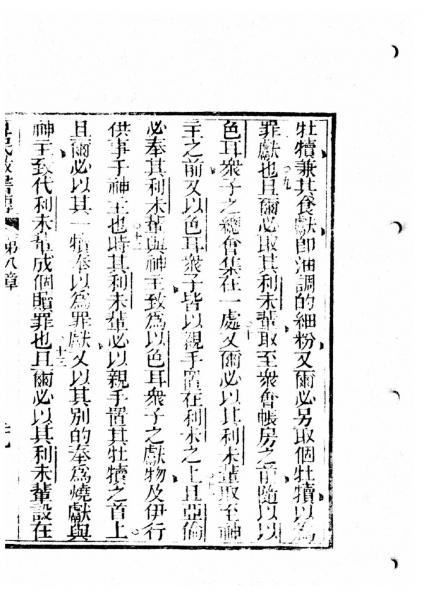 牡犢兼其食獻即油調的細粉又爾必另取個牡犢以為
罪獻也且爾必取其利未輩取至衆會帳房之前隨以以
色耳衆子之總會集在一處又爾必以其利未輩取至神
主之前又以色耳衆子皆以親手置在利未之上且亞倫
必奉其利未輩與神主致為以色耳衆子之獻物及伊行
供事于神主也時其利未輩必以親手置其牡犢之首上
且爾必以其一犢奉以為罪獻又以其別的奉為燒獻與
神主致代利未輩成個贖罪也且爾必以其利未輩設在
第八章